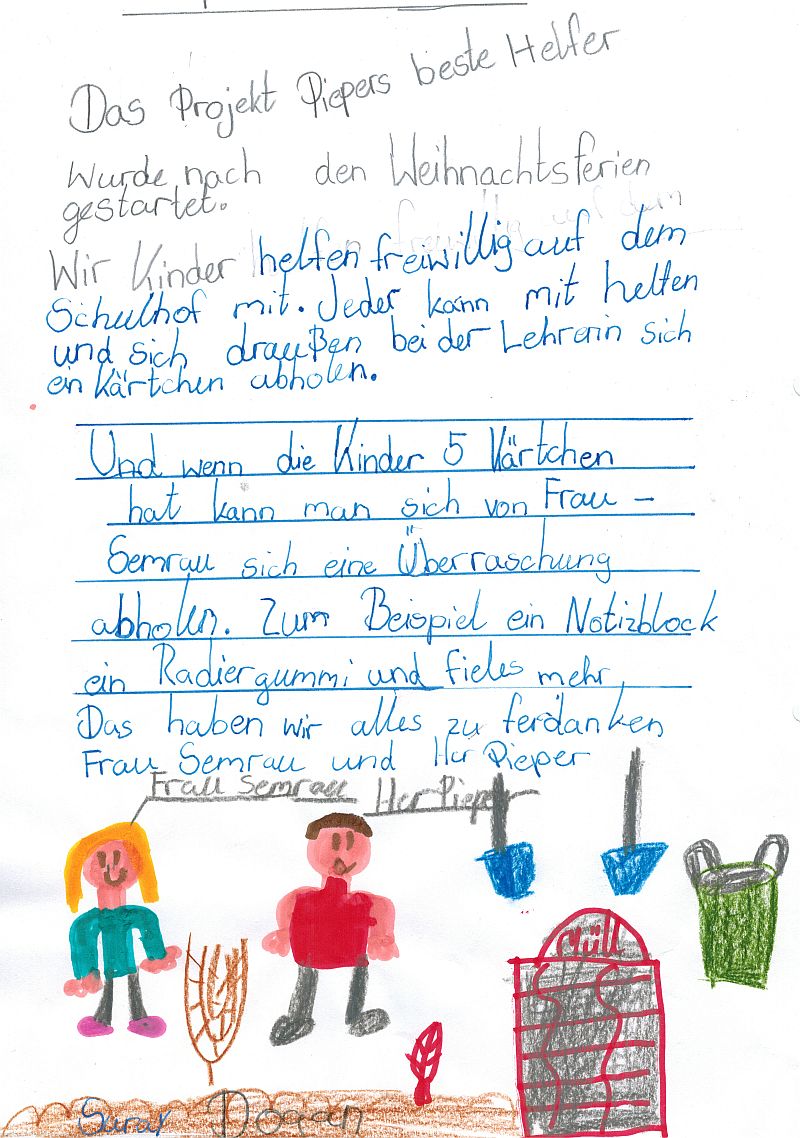 Das Projekt Piepers beste Helfer
Wurde nach den Weihnachtsferien
gestartet.
Wir Kinder helfen freiwillig auf dem
Schulhof mit. Jeder kann mit helfen
und sich draußen bei der Lehrerin sich
ein Kärtchen abholen.
Und wenn die Kinder 5 Kärtchen
hat kann man sich von Frau –
Semrau sich eine Überraschung
abholen. Zum Beispiel ein Notizblock
ein Radiergummi und fieles mehr
Das haben wir alles zu ferdanken
Frau Semrau und Her Pieper
Frau Semrau Her Pieper
Müll
Doğan